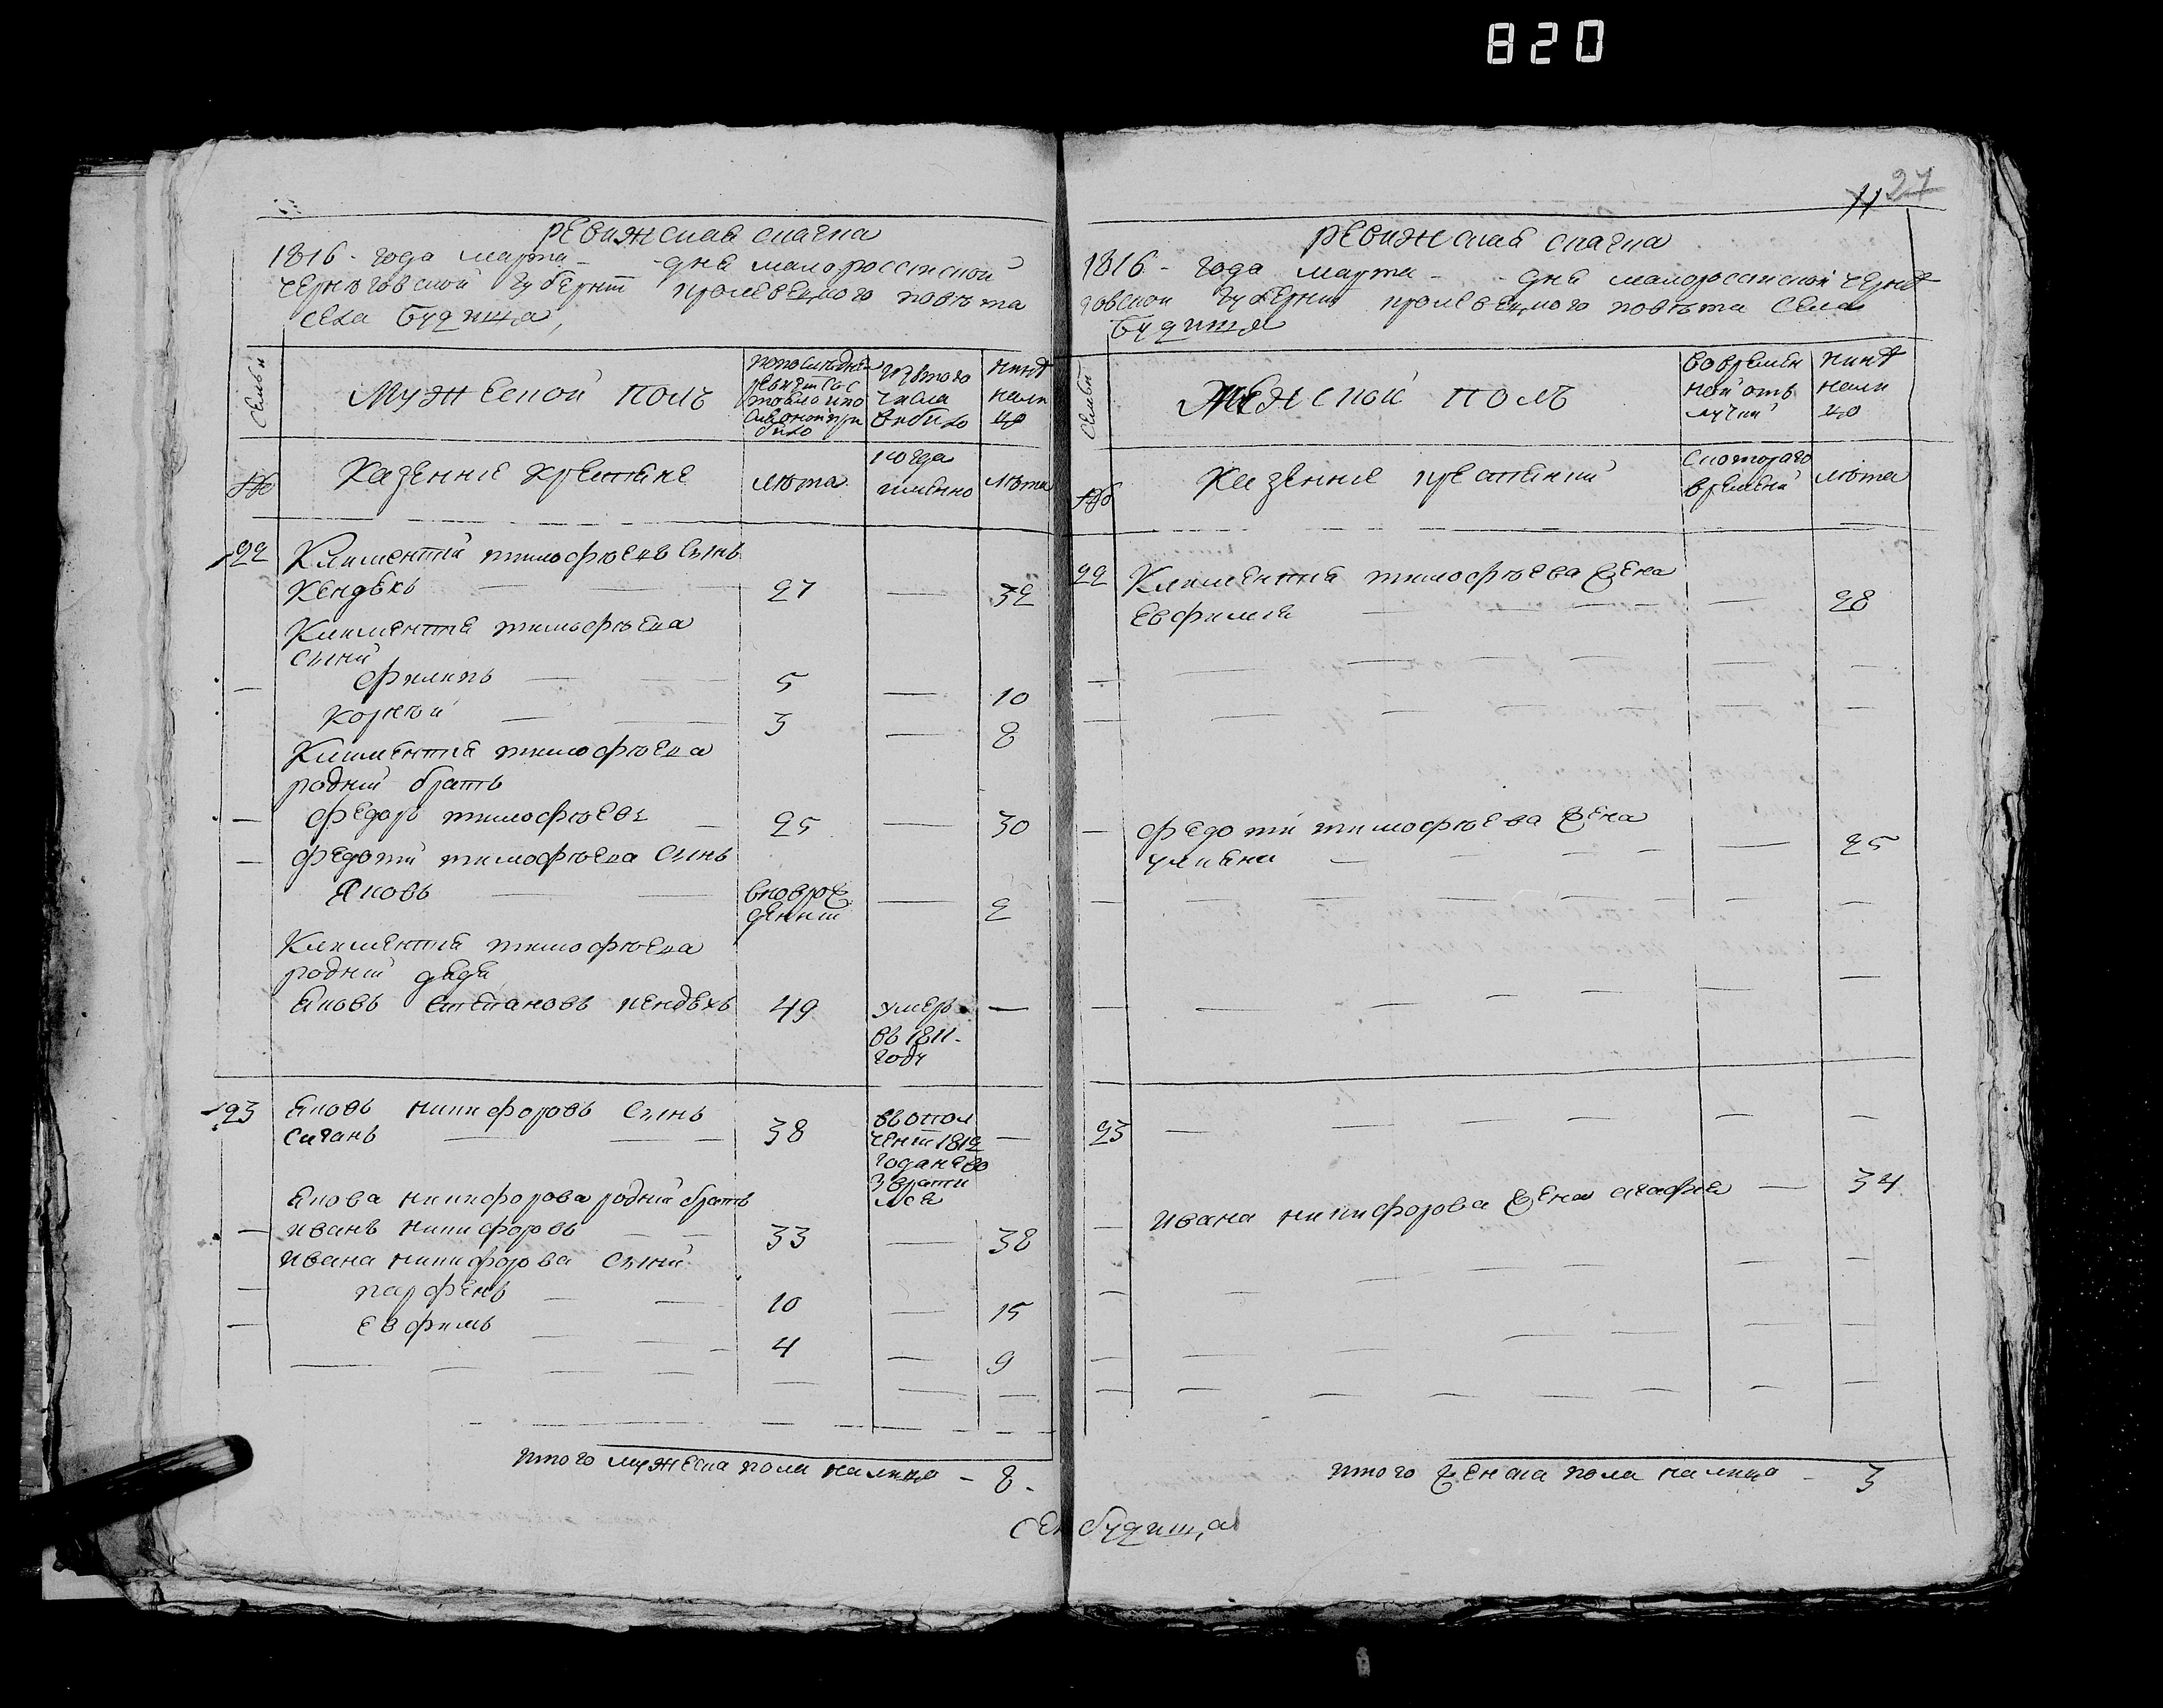 820
11 27
ревижская скаска
1816 - года марта - - дня малороссийской
черниговской губернии кролевецкого повета
села Будища,
семьи
Мужеской полъ
по последней ревизии состояло и после оной прибыло
изъ того числа выбыло
ныне на лицо
№
Казенние крестяне
лета
когда именно
лета
22 Климентий тимофеевъ сынъ
Кендехъ — 27 — 32
Климентия тимофеева
сыни
— филипъ — 5 — 10
Корней — 3 — 8
Климентия тимофеева
родний братъ
— федоръ тимофеевъ — 25 — 30
— федота тимофеева сынъ
Яковъ — вноврожденний — 2
Климентия тимофеева
родний дядя
Яковъ Степановъ кендехъ 49 умеръ —
въ 1811-
году
23 Яковъ никифоровъ сынъ
сиганъ — 38 въ ополчении 1812 года не возвратился —
Якова никифорова родний братъ
— иванъ никифоровъ — 33 — 38
Ивана никифорова сыни
— парфенъ — 10 — 15
— евфимъ — 4 — 9
итого мужеска пола налицо - 8 -
ревижская скаска
1816 - года марта - - дня малороссийской черни
говской губернии кролевецкого повета села
Будища
семьи
Женской полъ
во временной отлучки
ныне на лицо
№
Казенние крестянки
с которого времени
лета
22 Климентия тимофеева жена
Евфимия — 28
— федота тимофеева жена
улияна — 25
23
— Ивана никифорова жена агафия — 34
итого женска пола налицо - 3
села будища